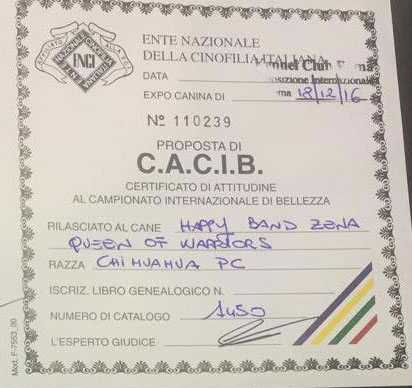 ENTE NAZIONALE
DELLA CINOFILIA ITALIANA
AFFILIATO ALLA F.C.I.
ENCI
DATA
EXPO CANINA DI
Kennel Club Roma
Esposizione Internazionale
Roma 18/12/16
Nº 110239
PROPOSTA DI
C.A.C.I.B.
CERTIFICATO DI ATTITUDINE
AL CAMPIONATO INTERNAZIONALE DI BELLEZZA
RILASCIATO AL CANE HAPPY BAND ZENA
QUEEN OF WARRIORS
RAZZA CHIHUAHUA PC
ISCRIZ. LIBRO GENEALOGICO N.
NUMERO DI CATALOGO 1450
L'ESPERTO GIUDICE
Mod. F-7553.90